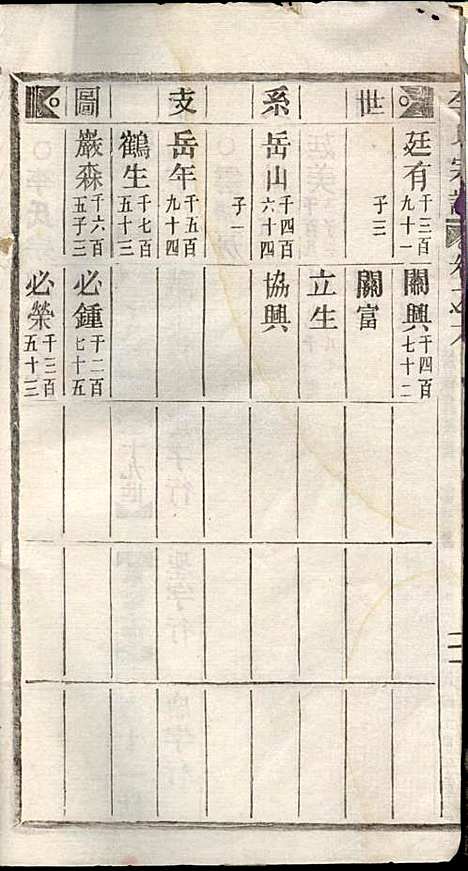 世系支圖
廷有 千三百九十一
子三
岳山 千四百六十四
子一
岳年 千五百九十四
鶴生 千七百五十三
巖森 千六百五子三
關興 千四百七十二
關富
立生
協興
必鍾 千二百七十五
必榮 千三百五十三